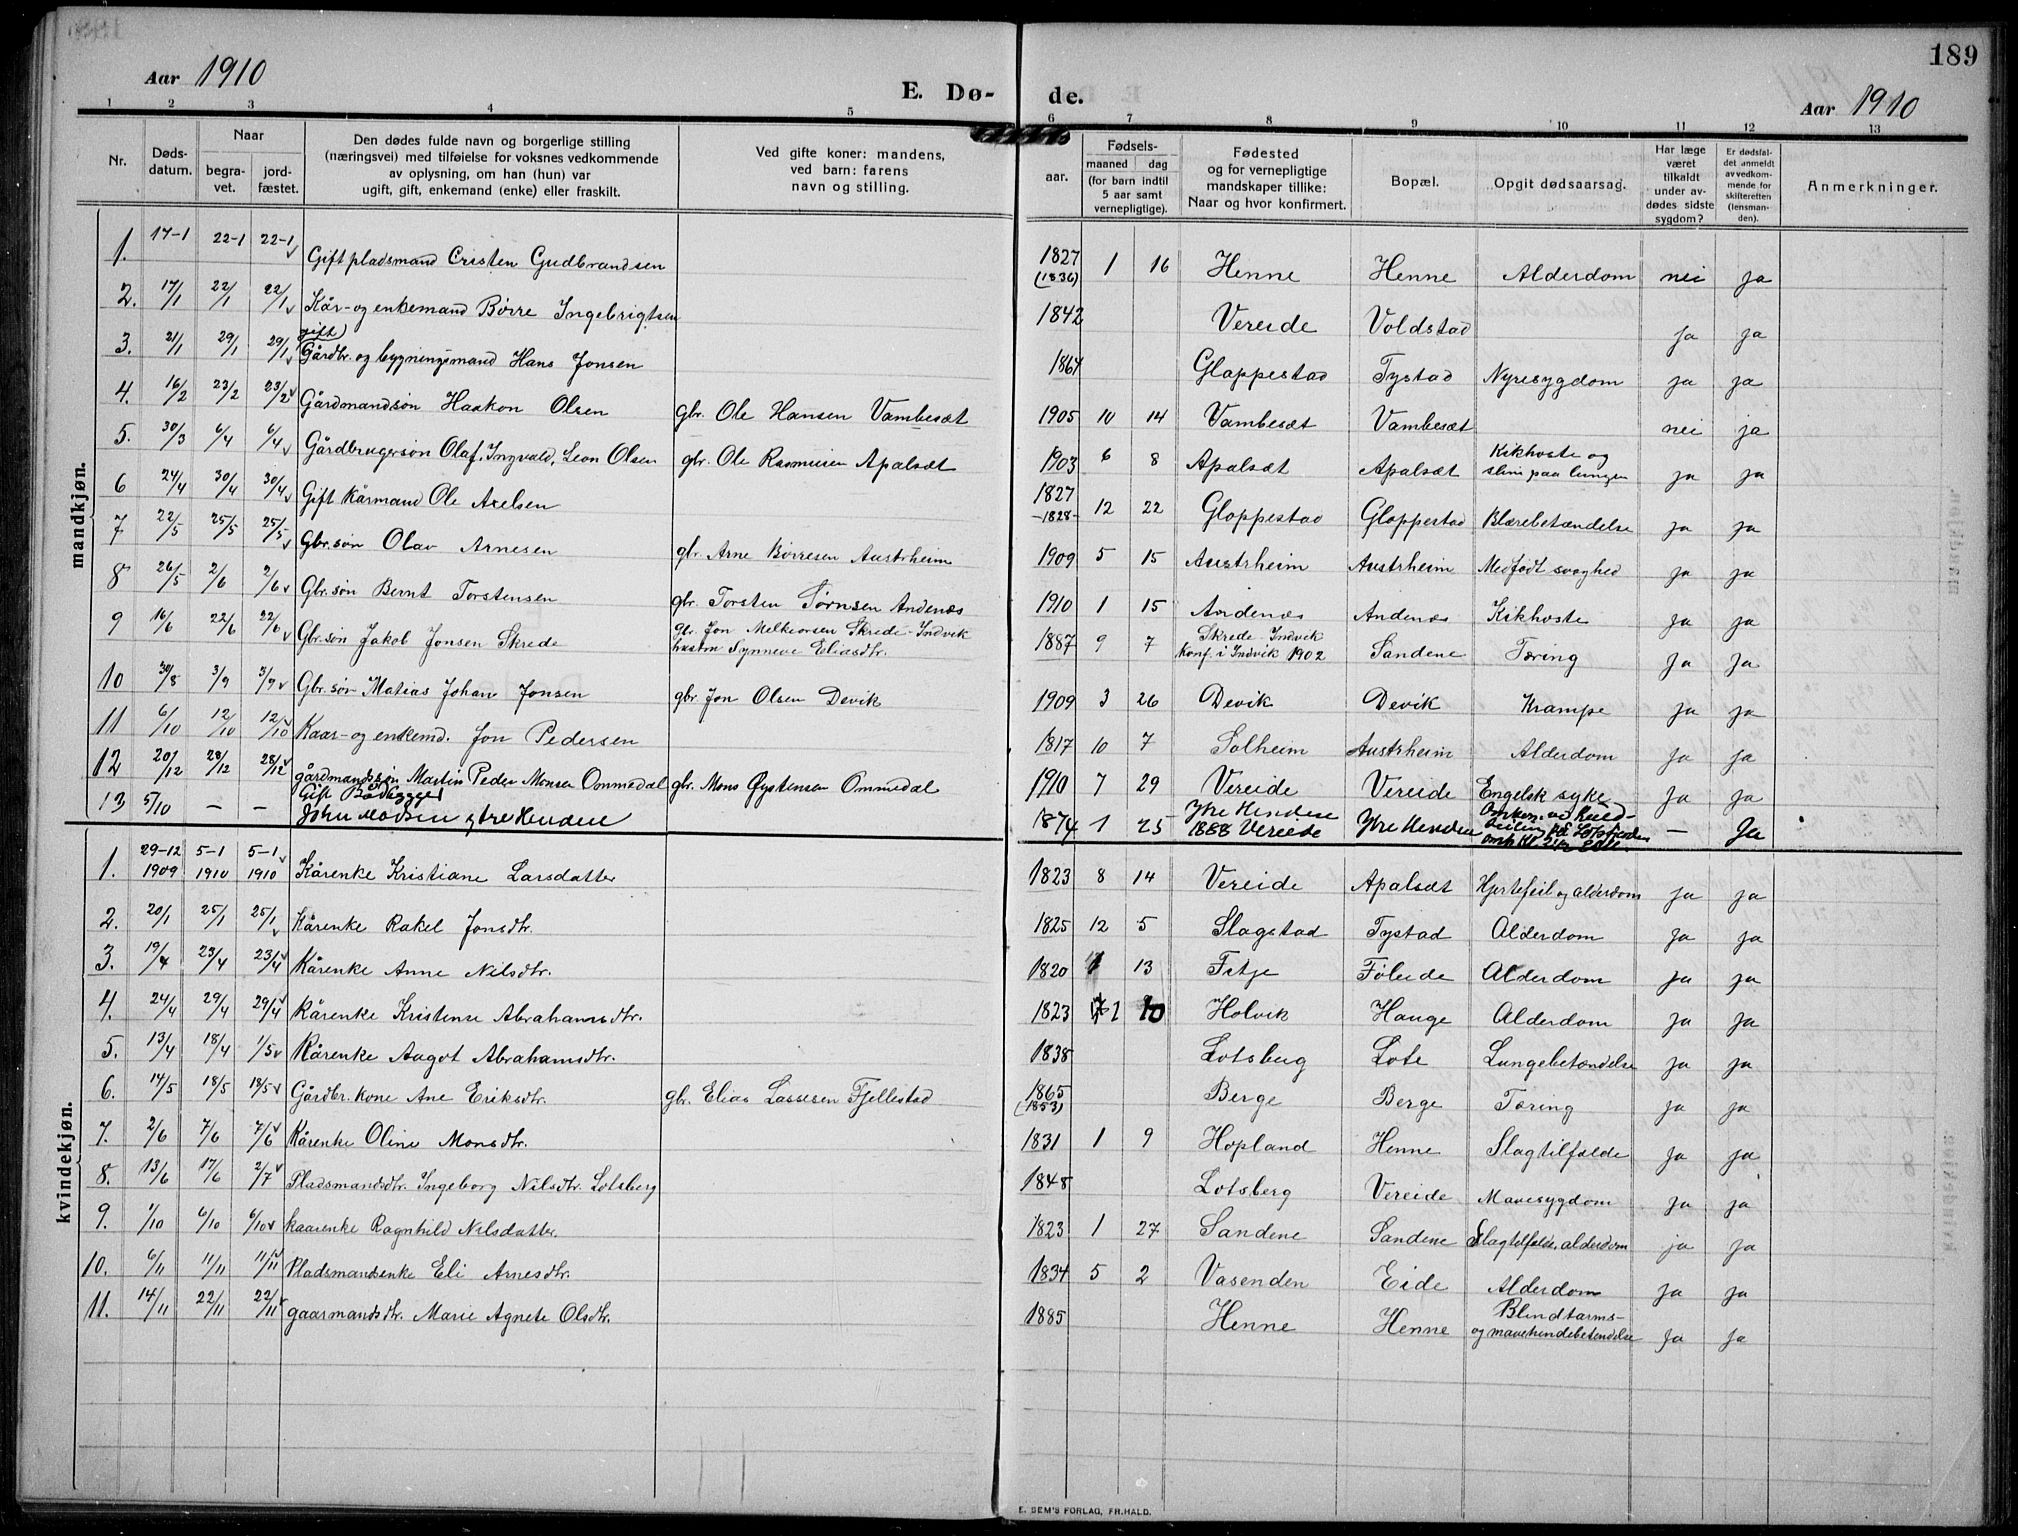 189
Aar 1910
E. Dø- de.
Aar 1910
1 2 3 4 5 6 7 8 9 10 11 12 13
Nr.
Døds-
datum.
Naar
begra-
vet.
jord-
fæstet.
Den dødes fulde navn og borgerlige stilling
(næringsvei) med tilføielse for voksnes vedkommende
av oplysning, om han (hun) var
ugift, gift, enkemand (enke) eller fraskilt.
Ved gifte koner: mandens,
ved barn: farens
navn og stilling.
aar.
Fødsels-
maaned dag
(for barn indtil
5 aar samt
vernepligtige).
Fødested
og for vernepligtige
mandskaper tillike:
Naar og hvor konfirmert.
Bopæl.
Opgit dødsaarsag.
Har læge
været
tilkaldt
under av-
dødes sidste
sygdom?
Er dødsfal-
det anmeldt
av vedkom-
mende for
skifteretten
(lensman-
den).
Anmerkninger.
mandkjøn.
1. 17-1 22-1 22-1 Gift pladsmand Cristen Gudbrandsen 1827 (1836) 1 16 Henne Henne Alderdom nei ja
2. 17/1 22/1 22/1 Kår- og enkemand Børre Ingebrigtsen 1842 Vereide Voldstad Ja ja
3. 21/1 29/1 29/1 (gift) Gårdbr. og bygningsmand Hans Jonsen 1864 Gloppestad Tystad Nyresygdom ja ja
4. 16/2 23/2 23/2 Gårdmandsøn Haakon Olsen gbr. Ole Hansen Vambesæt 1905 10 14 Vambesæt Vambesæt nei ja
5. 30/3 6/4 6/4 Gårdbrugersøn Olaf, Ingvald, Leon Olsen gbr. Ole Rasmusen Apalsæt 1903 6 8 Apalsæt Apalsæt Kikhoste og slim paa lungen ja ja
6 24/4 30/4 30/4 Gift kårmand Ole Axelsen 1827 -1828- 12 22 Gloppestad Gloppestad Blærebetændelse ja ja
7 22/5 25/5 25/5 Gbr. søn Olav Arnesen gbr. Arne Børresen Austrheim 1909 5 15 Austrheim Austrheim Medfødt svaghed ja ja
8 26/5 2/6 2/6 Gbr. søn Bernt Torstensen gbr. Torsten Tørnsen Andenæs 1910 1 15 Andenæs Andenæs Kikhoste ja ja
9 16/6 22/6 22/6 Gbr. søn Jakob Jonsen Skrede gbr. Jon Melkiorsen Skrede - Indvik hustru Synneve Eliasdtr. 1887 9 7 Skrede - Indvik Konf. i Indvik 1902 Sandene Tæring Ja Ja
10 30/8 3/9 3/9 Gbr. søn Matias Johan Jonsen gbr. Jon Olsen Devik 1909 3 26 Devik Devik Krampe ja ja
11 6/10 12/10 12/10 Kaar- og enkemd. Jon Pedersen 1817 10 7 Solheim Austrheim Alderdom Ja ja
12 20/12 28/12 28/12 gårdmandssøn Martin Peder Monsen Ommedal gbr. Mons Øystensen Ommedal 1910 7 29 Vereide Vereide Engelsk syke ja ja
13 5/10 — — Gift Bådbygger John Madsen ytre Henden 1874 1 25 Ytre Hendene 1888 Vereide Ytre Henden — Ja
kvindekjøn.
1. 29-12 1909 5-1 1910 5-1 1910 Kårenke Kristiane Larsdatter 1823 8 14 Vereide Apalsæt Hjertefeil og alderdom ja ja
2. 20/1 25/1 25/1 Kårenke Rakel Jonsdtr. 1825 12 5 Slagstad Tystad Alderdom Ja ja
3. 19/4 23/4 23/4 Kårenke Anne Nilsdtr. 1820 1 13 Fitje Føleide Alderdom Ja ja
4. 24/4 29/4 29/4 Kårenke Kristense Abrahamsdtr. 1823 1 10 Holvik Hauge Alderdom Ja Ja
5. 13/4 18/4 1/5 Kårenke Aagot Abrahamsdtr. 1838 Lotsberg Lote Lungebetændelse ja ja
6. 14/5 18/5 18/5 Gårdbr. kone Ane Eriksdtr. gbr. Elias Lassesen Fjellestad 1865 (1853) Berge Berge Tæring ja ja
7. 2/6 7/6 7/6 Kårenke Oline Monsdtr. 1831 1 9 Hopland Henne Slagtilfælde Ja Ja
8. 13/6 17/6 2/7 Pladsmandsdtr. Ingeborg Nilsdtr. Lotsberg 1848 Lotsberg Vereide Mavesygdom Ja Ja
9. 1/10 6/10 6/10 kaarenke Ragnhild Nilsdatter. 1823 1 27 Sandene Sandene Slagtilfælde, alderdom ja ja
10. 6/11 11/11 11/11 Pladsmandsenke Eli Arnesdtr. 1834 5 2 Vasenden Eide Alderdom Ja Ja
11. 14/11 22/11 22/11 gaarmandsdtr. Marie Agnete Olsdtr. 1885 Henne Henne Blindtarms- og mavehindebetendelse Ja Ja
E. SEM'S FORLAG, FR.HALD.